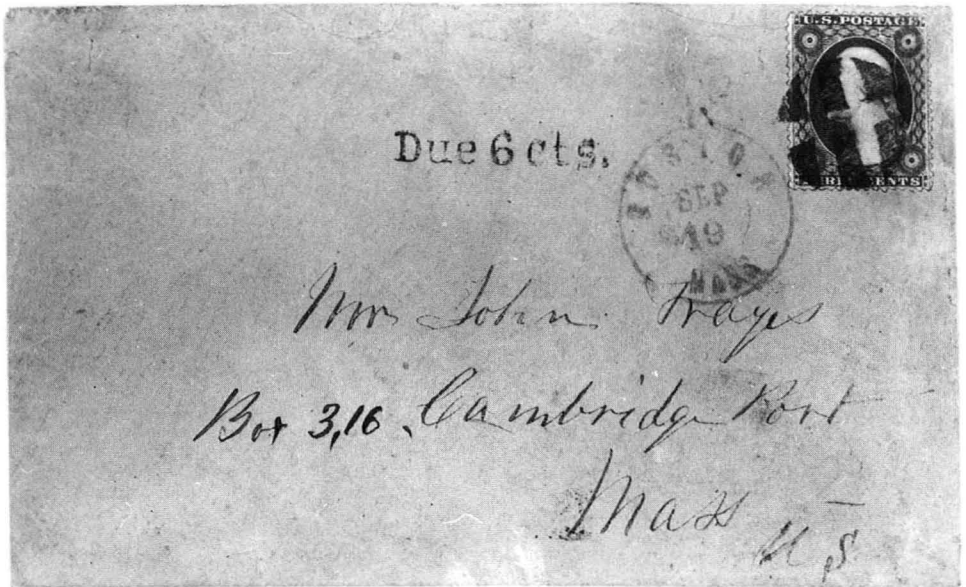 U.S. POSTAGE
CENTS
Due 6 cts.
BOSTON
SEP
19
MASS
Mr John Frayes
Box 3,16. Cambridge Port
Mass
U S